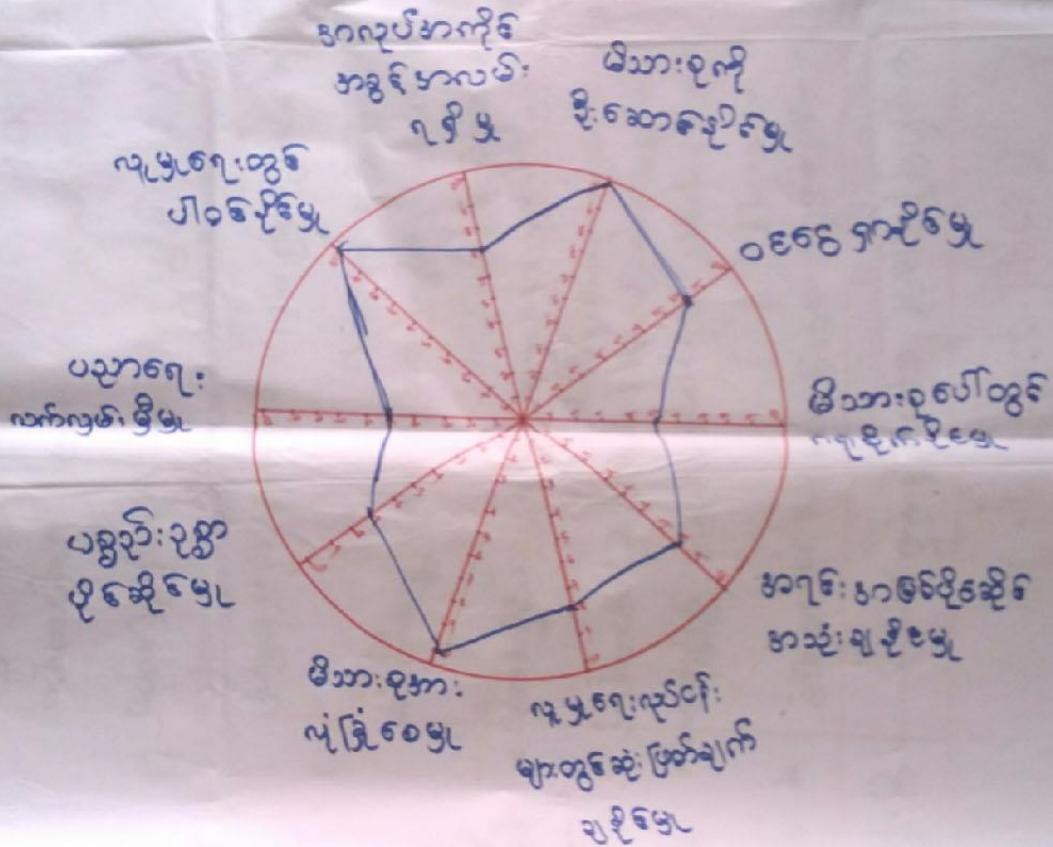 အလုပ်အကိုင်
အခွင့်အလမ်း
ရရှိမှု
မိသားစုကို
ဦးဆောင်နိုင်မှု
ဝင်ငွေ ရှာနိုင်မှု
မိသားစုပေါ်တွင်
အရင်းအမြစ်ပိုင်ဆိုင်
အသုံးချနိုင်မှု
လူမှုရေးလုပ်ငန်း
များတွင်ဆုံးဖြတ်ချက်
ချနိုင်မှု
မိသားစုအား
လုံခြုံစေမှု
ပစ္စည်းဥစ္စာ
ပိုင်ဆိုင်မှု
ပညာရေး
လက်လှမ်းမှီမှု
လူမှုရေးတွင်
ပါဝင်နိုင်မှု